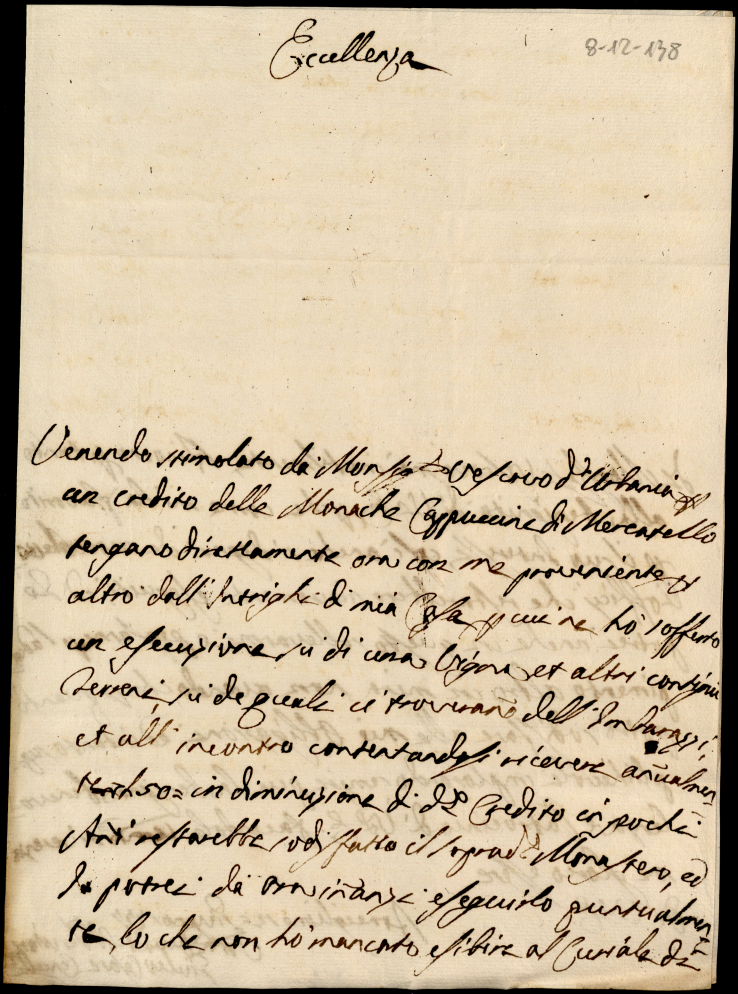 Eccellenza
8-12-138
Venendo stimolato da Monsig.r Vescovo d'Urbania p
un credito delle Monache Cappuccine di Mercatello
tengano direttamente ora con me proveniente p
altro dall'Intrighi di mia Casa p cui ne hò sofferto
un esecuzione su di una Vigna et altri contigui
Terreni, su de quali ci troverano dell'Imbarazzi,
et all'incontro contentandosi ricevere añualmen=
te 50= in diminuzione di d.o Credito in pochi
Anni restarebbe sodisfatto il soprad.o Monastero, ed
Io potrei da ora inanzi eseguirlo puntualmen=
te, lo che non hò mancato esibire al Curiale di